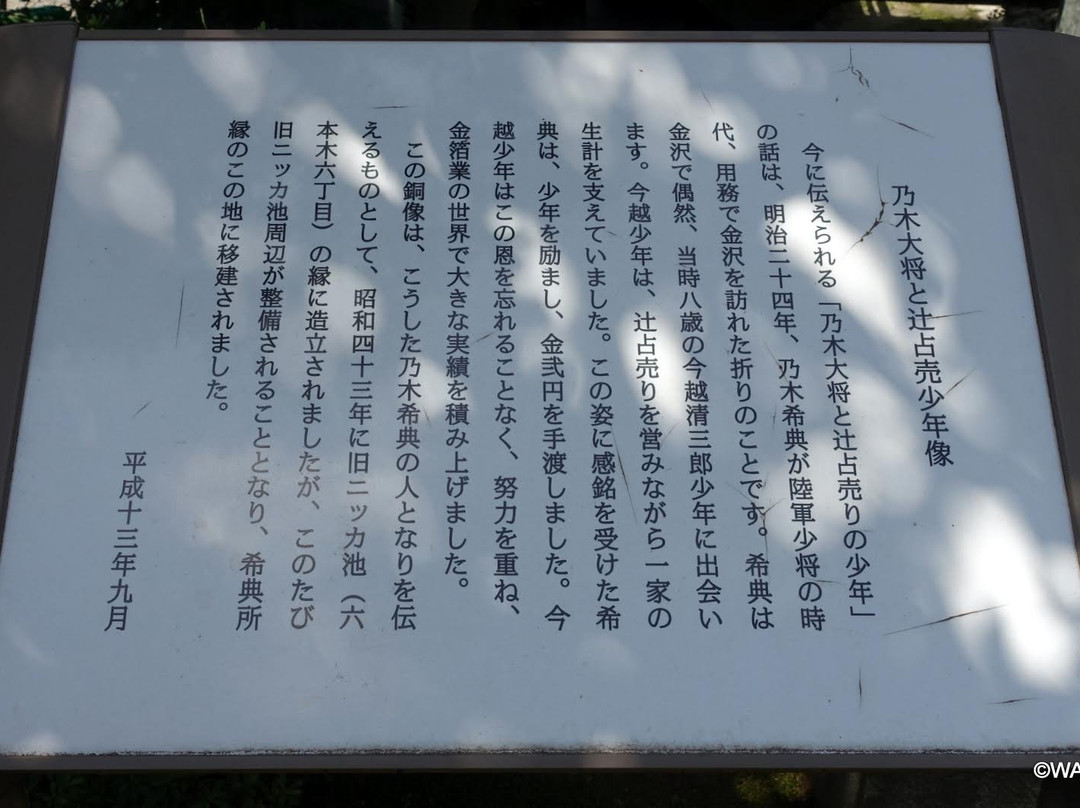 乃木大将と辻占売少年像
今に伝えられる「乃木大将と辻占売りの少年」
の話は、明治二十四年、乃木希典が陸軍少将の時
代、用務で金沢を訪れた折りのことです。希典は
金沢で偶然、当時八歳の今越清三郎少年に出会い
ます。今越少年は、辻占売りを営みながら一家の
生計を支えていました。この姿に感銘を受けた希
典は、少年を励まし、金弐円を手渡しました。今
越少年はこの恩を忘れることなく、努力を重ね、
金箔業の世界で大きな実績を積み上げました。
この銅像は、こうした乃木希典の人となりを伝
えるものとして、昭和四十三年に旧ニッカ池（六
本木六丁目）の縁に造立されましたが、このたび
旧ニッカ池周辺が整備されることとなり、希典所
縁のこの地に移建されました。
平成十三年九月
©WA